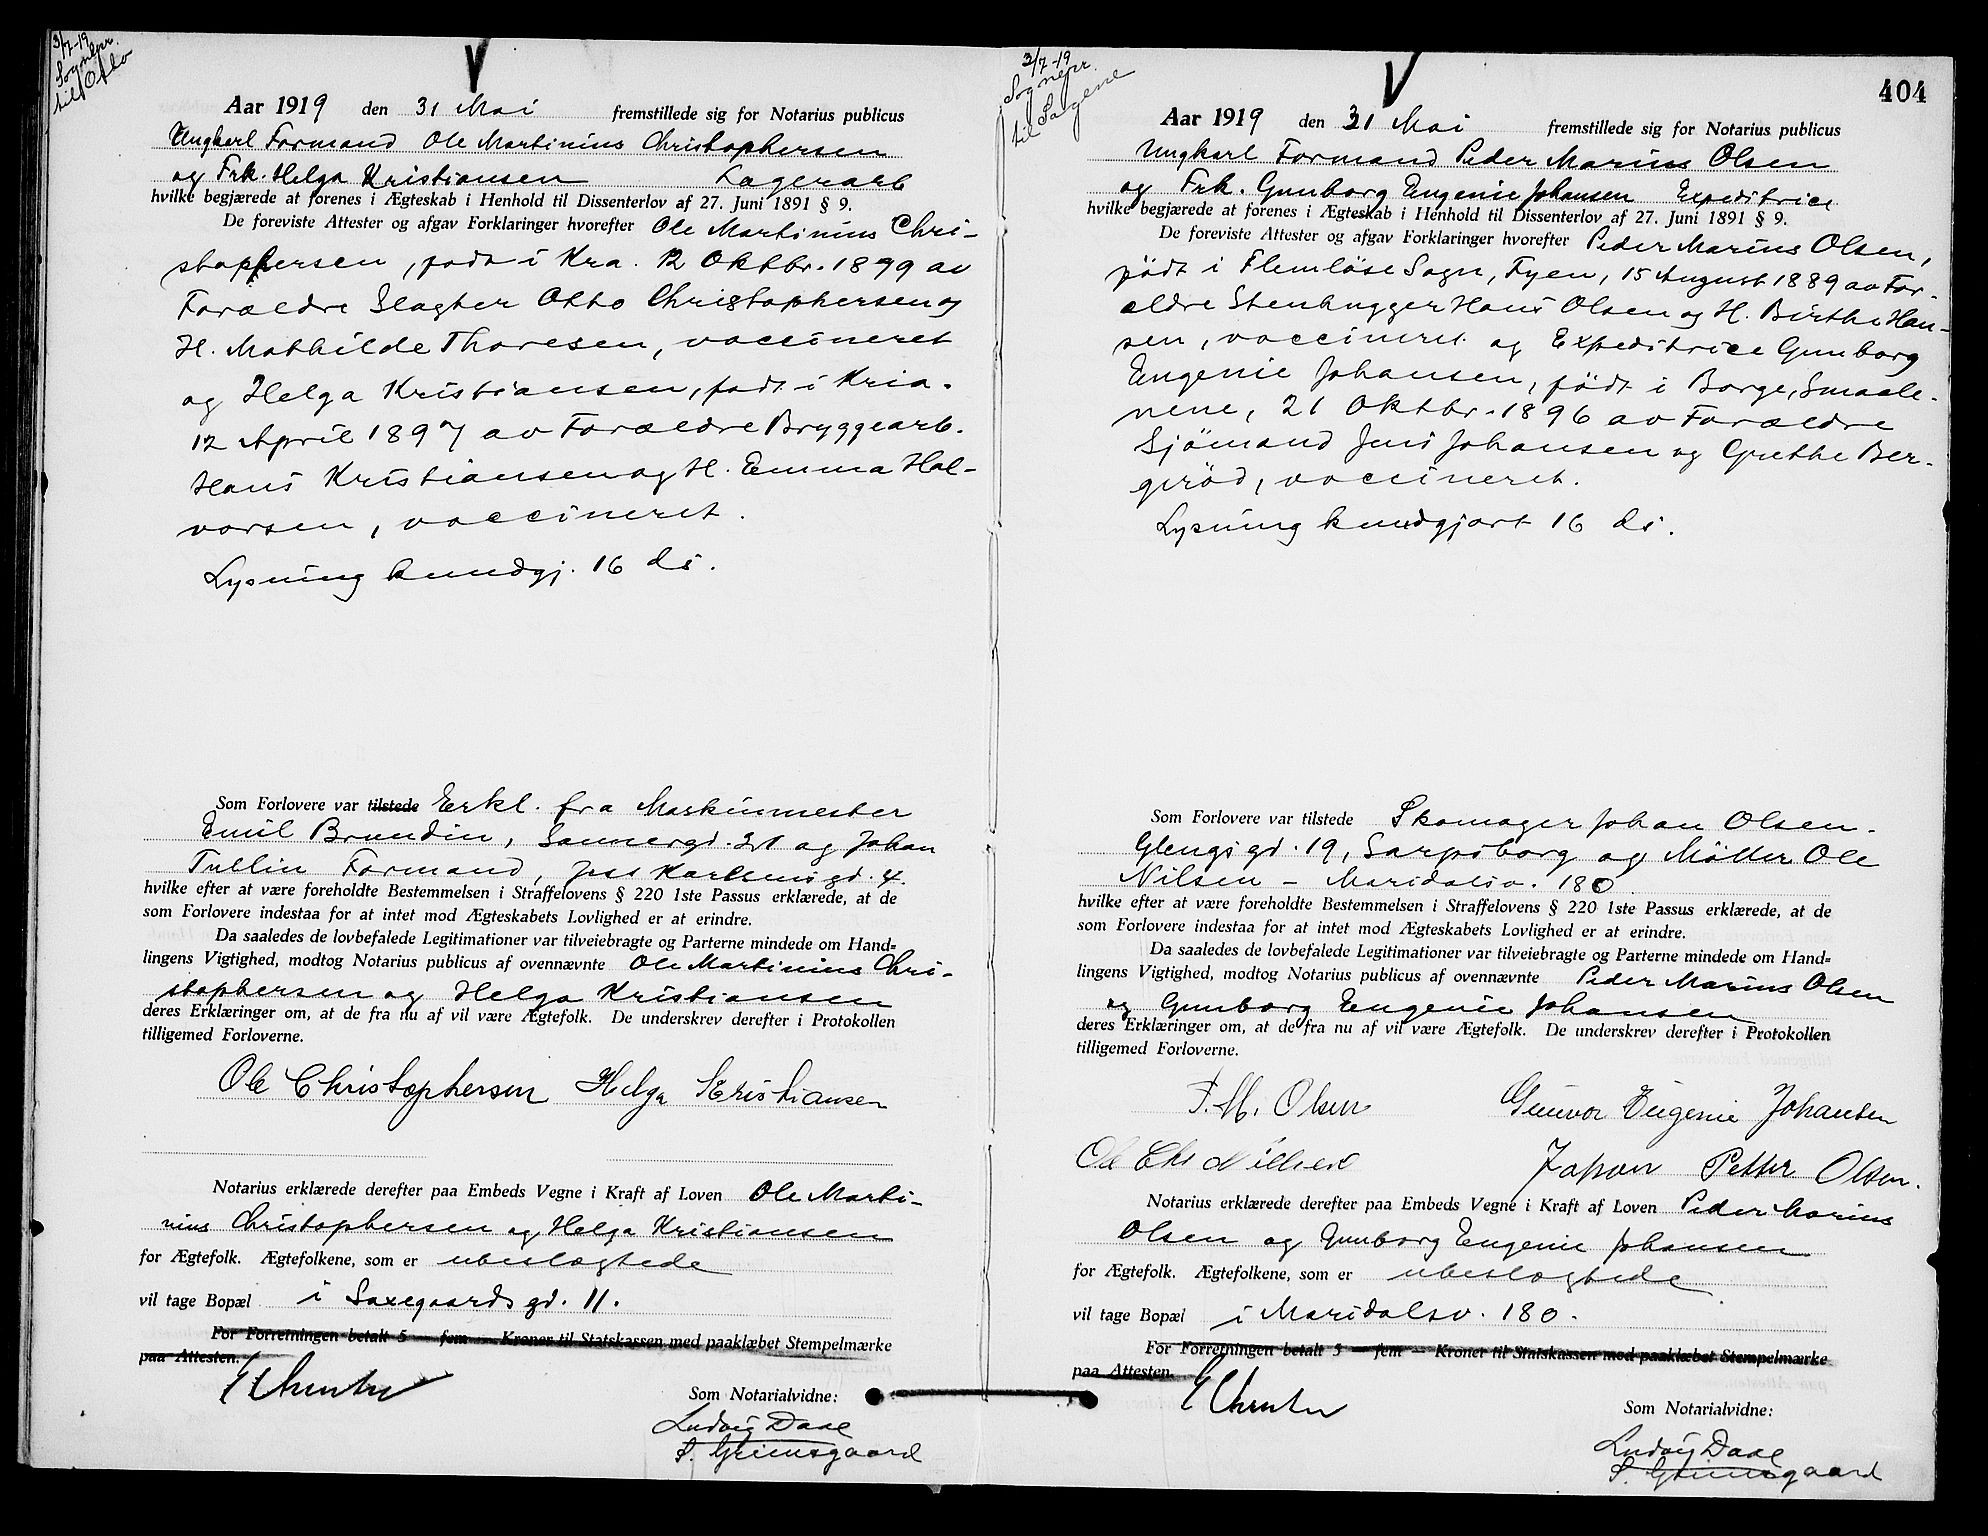 3/7-19
Sognepr.
til Oslo
Aar 1919 den 31 Mai fremstillede sig for Notarius publicus
Ungkarl Formand Ole Martinius Christophersen
og Frk. Helga Kristiansen Lagerarb
hvilke begjærede at forenes i Ægteskab i Henhold til Dissenterlov af 27. Juni 1891 § 9.
De foreviste Attester og afgav Forklaringer hvorefter Ole Martinius Chri-
stophersen, født i Kra. 12 Oktbr. 1899 av
Forældre Slagter Otto Christophersen og
H. Mathilde Thoresen, vaccineret
og Helga Kristiansen, født i Kria.
12 April 1897 av Forældre Bryggearb.
Hans Kristiansen og H. Emma Hal-
vorsen, vaccineret.
Lysning kundgj. 16 ds.
Som Forlovere var tilstede Erkl. fra Maskinmester
Emil Brundin, Sannergd. 31 og Johan
Tullin Formand, Jess Karlsensgd. 4.
hvilke efter at være foreholdte Bestemmelsen i Straffelovens § 220 1ste Passus erklærede, at de
som Forlovere indestaa for at intet mod Ægteskabets Lovlighed er at erindre.
Da saaledes de lovbefalede Legitimationer var tilveiebragte og Parterne mindede om Hand=
lingens Vigtighed, modtog Notarius publicus af ovennævnte Ole Martinius Chri-
stophersen og Helga Kristiansen
deres Erklæringer om, at de fra nu af vil være Ægtefolk. De underskrev derefter i Protokollen
tilligemed Forloverne.
Ole Christophersen Helga Kristiansen
Notarius erklærede derefter paa Embeds Vegne i Kraft af Loven Ole Marti-
nius Christophersen og Helga Kristiansen
for Ægtefolk. Ægtefolkene, som er ubeslægtede
vil tage Bopæl i Saxegaardsgd. 11.
For Forretningen betalt 5 — fem — Kroner til Statskassen med paaklæbet Stempelmærke
paa Attesten.
Som Notarialvidne:
Ludvig Daae
S. Grimsgaard
3/7-19
Sognepr.
til Sagene
404
Aar 1919 den 31 Mai fremstillede sig for Notarius publicus
Ungkarl Formand Peder Marius Olsen
og Frk. Gunborg Eugenie Johansen Expeditrice
hvilke begjærede at forenes i Ægteskab i Henhold til Dissenterlov af 27. Juni 1891 § 9.
De foreviste Attester og afgav Forklaringer hvorefter Peder Marius Olsen,
født i Flemløse Sogn, Fyen, 15 August 1889 av For-
ældre Stenhugger Hans Olsen og H. Birthe Han-
sen, vaccineret og Expeditrice Gunborg
Eugenie Johansen, født i Borge, Smaale-
nene, 21 Oktbr. 1896 av Forældre
Sjømand Jens Johansen og Grethe Ber-
gerød, vaccineret.
Lysning kundgjort 16 ds.
Som Forlovere var tilstede Skomager Johan Olsen.
Glengsgd. 19, Sarpsborg og Møller Ole
Nilsen – Maridalsv. 180
hvilke efter at være foreholdte Bestemmelsen i Straffelovens § 220 1ste Passus erklærede, at de
som Forlovere indestaa for at intet mod Ægteskabets Lovlighed er at erindre.
Da saaledes de lovbefalede Legitimationer var tilveiebragte og Parterne mindede om Hand=
lingens Vigtighed, modtog Notarius publicus af ovennævnte Peder Marius Olsen
og Gunborg Eugenie Johansen
deres Erklæringer om, at de fra nu af vil være Ægtefolk. De underskrev derefter i Protokollen
tilligemed Forloverne.
P. M. Olsen Gunvor Eugenie Johansen
Ole Chr Nilsen Johan Petter Olsen.
Notarius erklærede derefter paa Embeds Vegne i Kraft af Loven Peder Marius
Olsen og Gunborg Eugenie Johansen
for Ægtefolk. Ægtefolkene, som er ubeslægtede
vil tage Bopæl i Maridalsv. 180.
For Forretningen betalt 5 — fem — Kroner til Statskassen med paaklæbet Stempelmærke
paa Attesten.
Som Notarialvidne:
Ludvig Daae
S. Grimsgaard